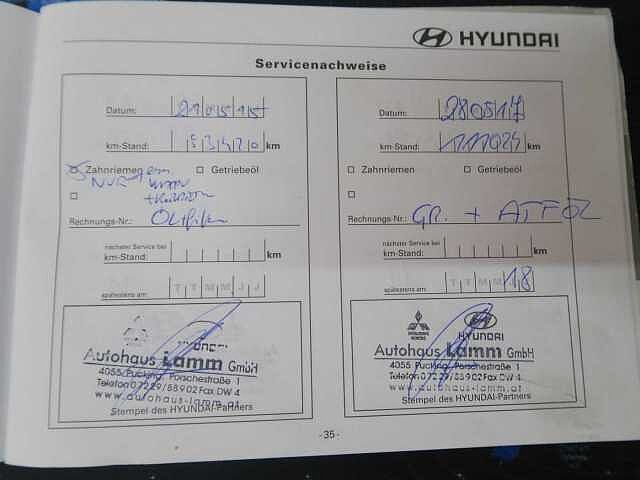 HYUNDAI
Servicenachweise
Datum: 21 05 15
km-Stand: km
Zahnriemen
NUR
Rechnungs-Nr.:
nächster Service bei
km-Stand: km
spätestens am: T T M M J J
HYUNDAI
Autohaus Lamm GmbH
4055 Pucking, Porschestraße 1
Telefon 07229/88902 Fax DW 4
www.autohaus-lamm.at
Stempel des HYUNDAI-Partners
Datum: 280517
km-Stand: 111024 km
Zahnriemen Getriebeöl
Rechnungs-Nr.: GR. + ATF ÖL
nächster Service bei
km-Stand: km
spätestens am: T T M M 18
MITSUBISHI MOTORS HYUNDAI
Autohaus Lamm GmbH
4055 Pucking, Porschestraße 1
Telefon 07229/88902 Fax DW 4
www.autohaus-lamm.at
Stempel des HYUNDAI-Partners
-35-